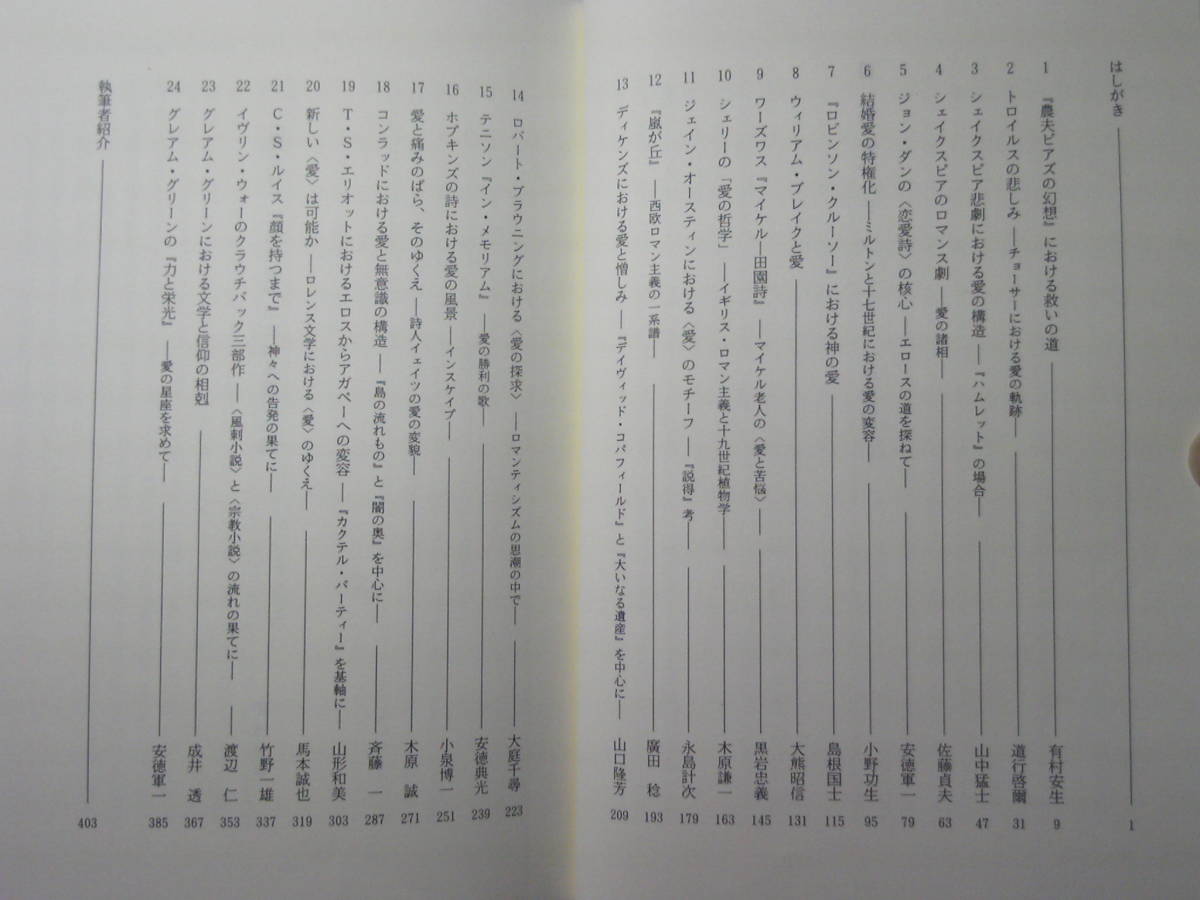 はしがき ―― 1
1 『農夫ピアズの幻想』における救いの道 ―― 有村安生 9
2 トロイルスの悲しみ ――チョーサーにおける愛の軌跡―― 道行啓爾 31
3 シェイクスピア悲劇における愛の構造 ――『ハムレット』の場合―― 山中猛士 47
4 シェイクスピアのロマンス劇 ――愛の諸相―― 佐藤貞夫 63
5 ジョン・ダンの〈恋愛詩〉の核心 ――エロースの道を探ねて―― 安徳軍一 79
6 結婚愛の特権化 ――ミルトンと十七世紀における愛の変容―― 小野功生 95
7 『ロビンソン・クルーソー』における神の愛 ―― 島根国士 115
8 ウィリアム・ブレイクと愛 ―― 大熊昭信 131
9 ワーズワス『マイケル―田園詩』 ――マイケル老人の〈愛と苦悩〉―― 黒岩忠義 145
10 シェリーの「愛の哲学」 ――イギリス・ロマン主義と十九世紀植物学―― 木原謙一 163
11 ジェイン・オースティンにおける〈愛〉のモチーフ ――『説得』考―― 永島計次 179
12 『嵐が丘』 ――西欧ロマン主義の一系譜―― 廣田 稔 193
13 ディケンズにおける愛と憎しみ ――『デイヴィッド・コパフィールド』と『大いなる遺産』を中心に―― 山口隆芳 209
14 ロバート・ブラウニングにおける〈愛の探求〉 ――ロマンティシズムの思潮の中で―― 大庭千尋 223
15 テニソン『イン・メモリアム』 ――愛の勝利の歌―― 安徳典光 239
16 ホプキンズの詩における愛の風景 ――インスケイプ―― 小泉博一 251
17 愛と痛みのばら、そのゆくえ ――詩人イェイツの愛の変貌―― 木原 誠 271
18 コンラッドにおける愛と無意識の構造 ――『島の流れもの』と『闇の奥』を中心に―― 斉藤 一 287
19 T・S・エリオットにおけるエロスからアガペーへの変容 ――『カクテル・パーティー』を基軸に―― 山形和美 303
20 新しい〈愛〉は可能か ――ロレンス文学における〈愛〉のゆくえ―― 馬本誠也 319
21 C・S・ルイス『顔を持つまで』 ――神々への告発の果てに―― 竹野一雄 337
22 イヴリン・ウォーのクラウチバック三部作 ――〈風刺小説〉と〈宗教小説〉の流れの果てに―― 渡辺 仁 353
23 グレアム・グリーンにおける文学と信仰の相剋 ―― 成井 透 367
24 グレアム・グリーンの『力と栄光』 ――愛の星座を求めて―― 安徳軍一 385
執筆者紹介 ―― 403